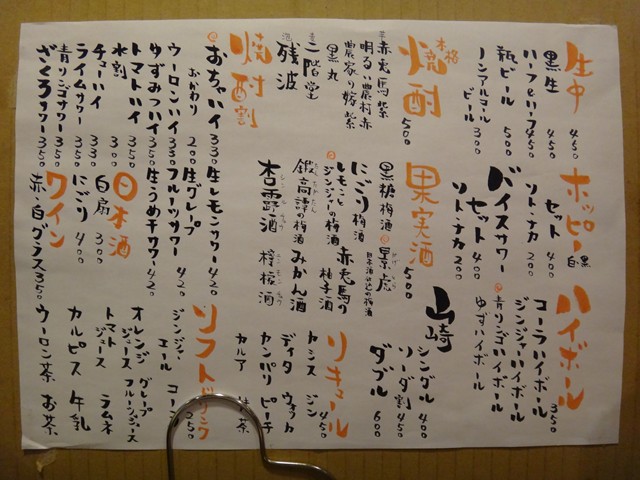 生中 450
黒生 450
ハーフ&ハーフ 450
瓶ビール 500
ノンアルコールビール 300
ホッピー 黒 白
セット 400
ソト・ナカ 200
バイスサワー
セット 400
ソト・ナカ 200
ハイボール 350
コーラハイボール
ジンジャーハイボール
青リンゴハイボール
ゆずハイボール
本格焼酎 500
赤兎馬 紫
明るい農村 赤
農家の嫁 紫
黒丸
二階堂
残波
果実酒 500
黒糖梅酒
景虎
日本酒仕込の梅酒
にごり梅酒
赤兎馬の柚子酒
レモンとジンジャーの梅酒
鍛高譚の梅酒
みかん酒
杏露酒
山崎
シングル 400
ソーダ割 450
ダブル 600
リキュール 450
カシス ジン
ディタ ウォッカ
カンパリ ピーチ
カルア 抹茶
焼酎割
おちゃハイ 330
おかわり 200
ウーロンハイ 330
ゆずみつハイ 350
トマトハイ 350
水割 300
チューハイ 330
ライムサワー 350
青リンゴサワー 350
ざくろサワー 350
生レモンサワー 420
生グレープフルーツサワー 420
生うめ干サワー 420
日本酒
白扇 300
にごり 400
ワイン
赤・白グラス 350
ソフトドリンク 250
ジンジャーエール コーラ
オレンジジュース グレープフルーツジュース
トマトジュース ラムネ
カルピス 牛乳
ウーロン茶 お茶